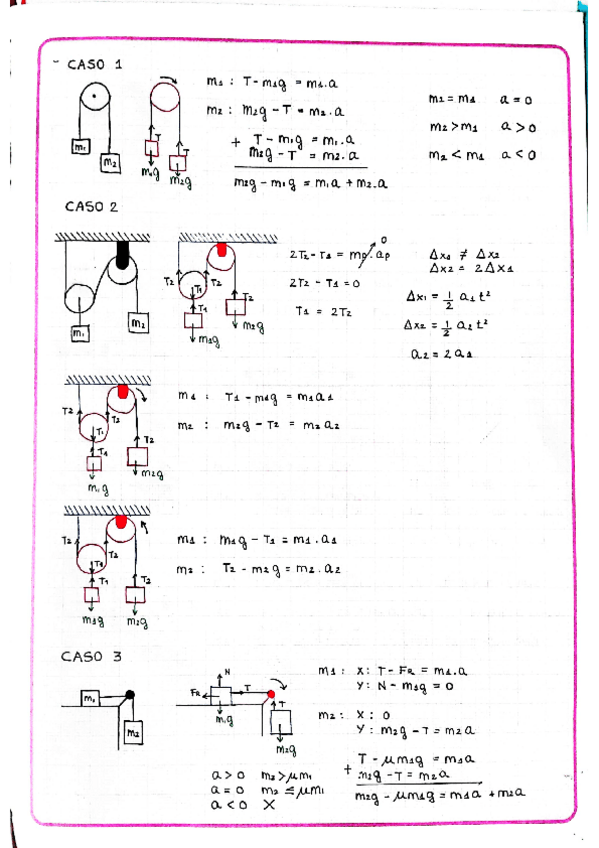 CASO 1
m1 : T - m1g = m1.a
m2 : m2g - T = m2.a
+ T - m1g = m1.a
m2g - T = m2.a
m2g - m1g = m1a + m2.a
m2 = m1 a = 0
m2 > m1 a > 0
m2 < m1 a < 0
m1
m2
T
T
m1g
m2g
CASO 2
m1
m2
T2
T2
T1
T1
T2
m1g
m2g
2T2 - T1 = mp.ap 0
2T2 - T1 = 0
T1 = 2T2
Δx1 ≠ Δx2
Δx2 = 2Δx1
Δx1 = 1/2 a1 t²
Δx2 = 1/2 a2 t²
a2 = 2a1
T2
T2
T1
T1
T2
m1g
m2g
m1 : T1 - m1g = m1a1
m2 : m2g - T2 = m2a2
T2
T2
T1
T1
T2
m1g
m2g
m1 : m1g - T1 = m1.a1
m2 : T2 - m2g = m2.a2
CASO 3
m1
m2
N
FR
T
T
m1g
m2g
m1 : X: T - FR = m1.a
Y: N - m1g = 0
m2 : X : 0
Y : m2g - T = m2a
+ T - μm1g = m1a
m2g - T = m2a
m2g - μm1g = m1a + m2a
a > 0 m2 > μm1
a = 0 m2 ≤ μm1
a < 0 X